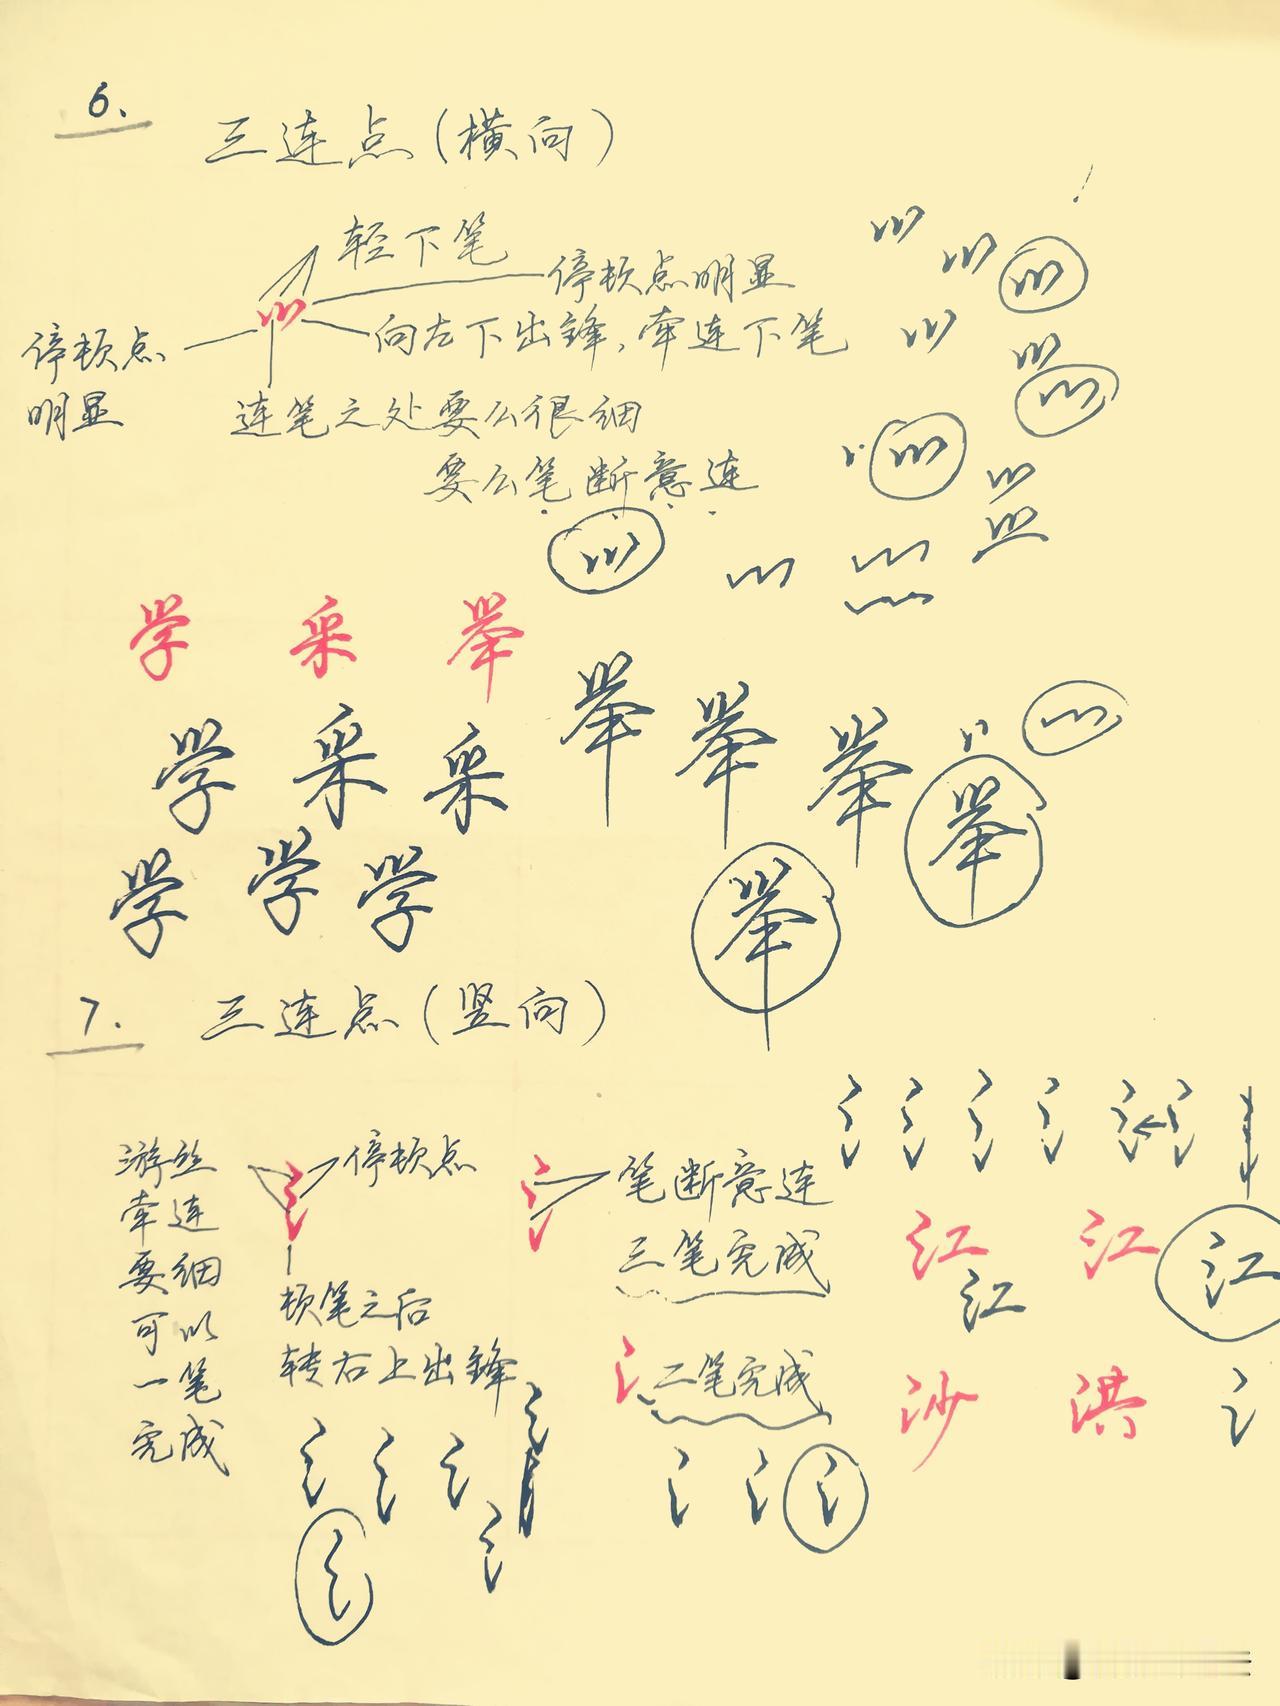 6.
三连点(横向)
轻下笔
停顿点明显
停顿点
明显
向左下出锋,牵连下笔
连笔之处要么很细
要么笔断意连
学 采 举
学 采 采 举 举 举 举
学 学 学 举
7.
三连点(竖向)
游丝
牵连
要细
可以
一笔
完成
停顿点
顿笔之后
转右上出锋
笔断意连
三笔完成
二笔完成
江 江 江
江
沙 洪